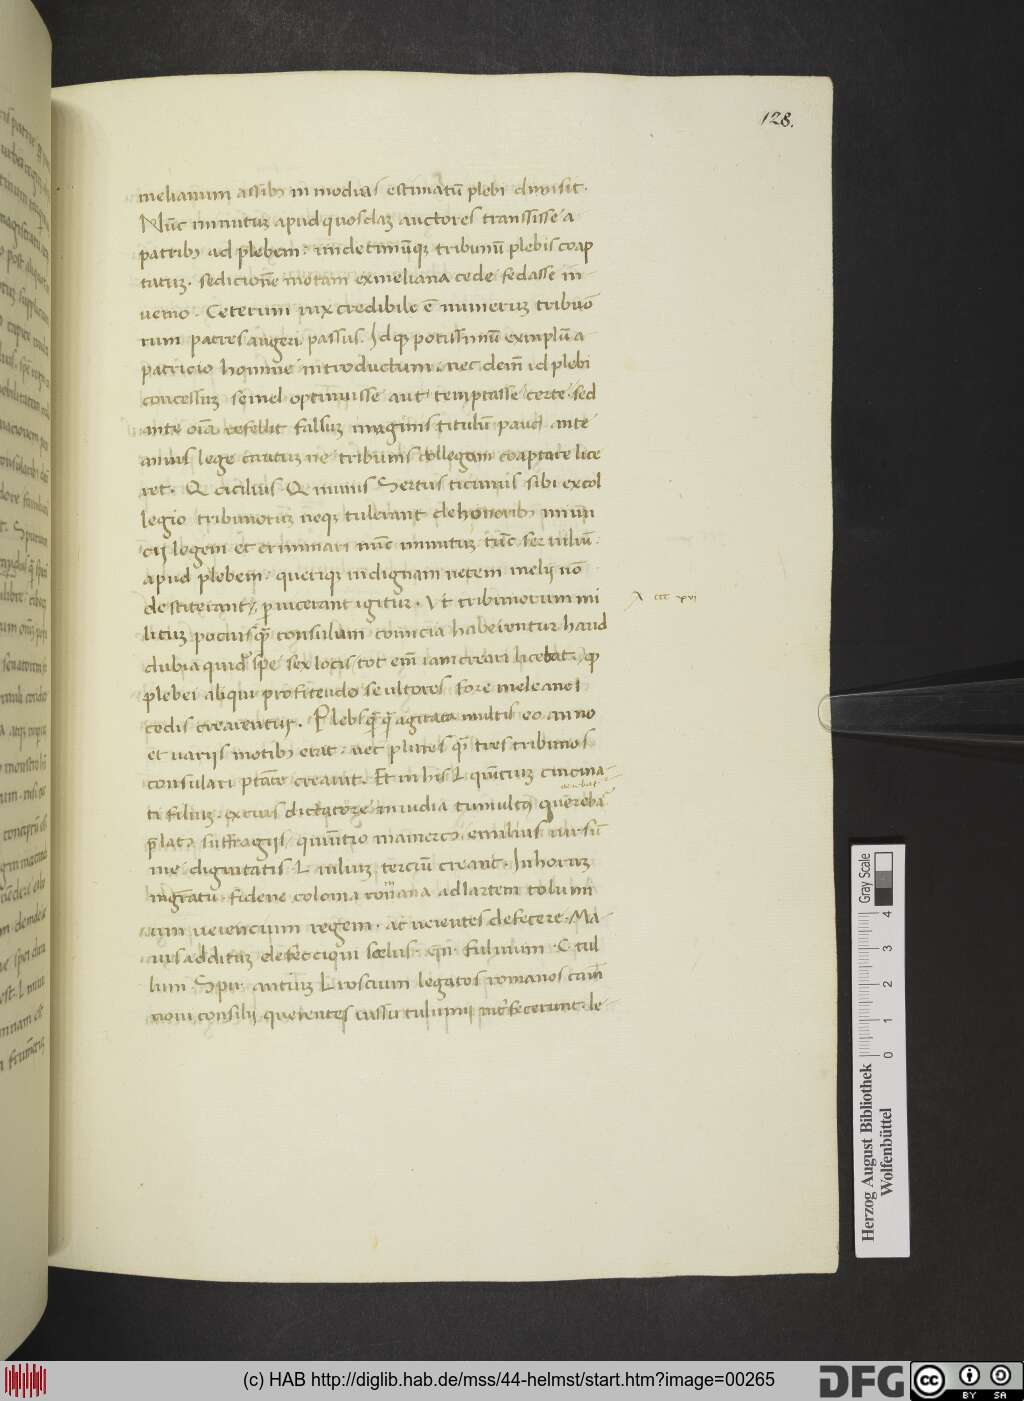 128.
melianum assib; in modios estimatū plebi diuisit.
Nūc minutuz apud quosdaz auctores transisse a
patrib; ad plebem. undecimūqz tribunū plebis coap
tatuz. sedicionē motam ex meliana cede sedasse in
uenio. Ceterum uix credibile ē numeruz tribuo
rum patres augeri passus. Idqz potissimū exinplū a
patricio homine introductum. nec dein̄ id plebi
concessuz semel optinuisse aut temptasse certe sed
ante oīa refellit falsuz imaginis titulū paucis ante
annis lege cautuz ne tribunis collegam coaptare lice
ret. Q cicilius Q iunius Sextus ticinius sibi ex col
legio tribunoruz neqz tulerant de honorib; minu
cij legem et criminari nūc minutuz tūc seruiliū.
apud plebem. queriqz indignam necem melij nō
destiterant. puicerant igitur. Vt tribunorum mi
A ccc xvi
lituz pocius q̄ consulum comicia haberentur haud
dubia quid spe sex locis tot em̄ iam creari licebat. qp
plebei aliqui profitendo se ultores fore meleane
cedis crearentur. Plebs q̄q̄ agitata multis eo anno
et uariis motib; erat. nec plures q̄ tres tribunos
consulari ptāte creauit. Et in his L quītiuz cincina
ti filiuz. ex cuius dictatore inuidia tumultus querebāt
p̄lat; suffragijs quintio mamerc; emilius uir sū
me dignitatis L iuliuz terciū creant. In horuz
mgr̄atu. fidene colonia romana ad lartem tolumi
um ueiencium regem. ac ueientes defecere. Ma
ius additūz defeccioni scelus. C fulcinum. C tul
lum Spu. antiuz L roscium legatos romanos cam̄
noui consilij querentes iussu tulumij intfecerunt. le
Gray Scale
0 1 2 3 4
Herzog August Bibliothek
Wolfenbüttel
(c) HAB http://diglib.hab.de/mss/44-helmst/start.htm?image=00265
DFG
cc BY SA